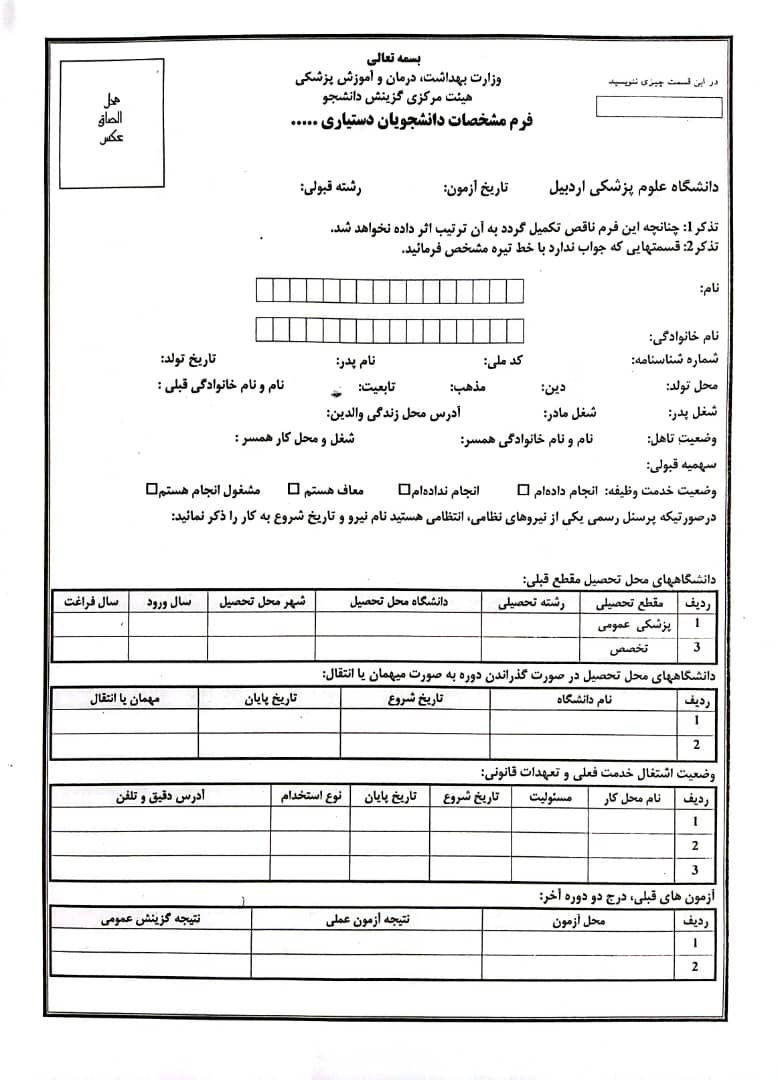 بسمه تعالی
وزارت بهداشت، درمان و آموزش پزشکی
هیئت مرکزی گزینش دانشجو
فرم مشخصات دانشجویان دستیاری .....
در این قسمت چیزی ننویسید
محل
الصاق
عکس
دانشگاه علوم پزشکی اردبیل تاریخ آزمون: رشته قبولی:
تذکر1: چنانچه این فرم ناقص تکمیل گردد به آن ترتیب اثر داده نخواهد شد.
تذکر2: قسمتهایی که جواب ندارد با خط تیره مشخص فرمائید.
نام:
نام خانوادگی:
شماره شناسنامه: کد ملی: نام پدر: تاریخ تولد:
محل تولد: دین: مذهب: تابعیت: نام و نام خانوادگی قبلی :
شغل پدر: شغل مادر: آدرس محل زندگی والدین:
وضعیت تاهل: نام و نام خانوادگی همسر: شغل و محل کار همسر :
سهمیه قبولی:
وضعیت خدمت وظیفه: انجام داده‌ام □ انجام نداده‌ام □ معاف هستم □ مشغول انجام هستم □
درصورتیکه پرسنل رسمی یکی از نیروهای نظامی، انتظامی هستید نام نیرو و تاریخ شروع به کار را ذکر نمائید:
دانشگاههای محل تحصیل مقطع قبلی:
ردیف مقطع تحصیلی رشته تحصیلی دانشگاه محل تحصیل شهر محل تحصیل سال ورود سال فراغت
1 پزشکی عمومی
3 تخصص
دانشگاههای محل تحصیل در صورت گذراندن دوره به صورت میهمان یا انتقال:
ردیف نام دانشگاه تاریخ شروع تاریخ پایان مهمان یا انتقال
1
2
وضعیت اشتغال خدمت فعلی و تعهدات قانونی:
ردیف نام محل کار مسئولیت تاریخ شروع تاریخ پایان نوع استخدام آدرس دقیق و تلفن
1
2
3
آزمون های قبلی، درج دو دوره آخر:
ردیف محل آزمون نتیجه آزمون عملی نتیجه گزینش عمومی
1
2